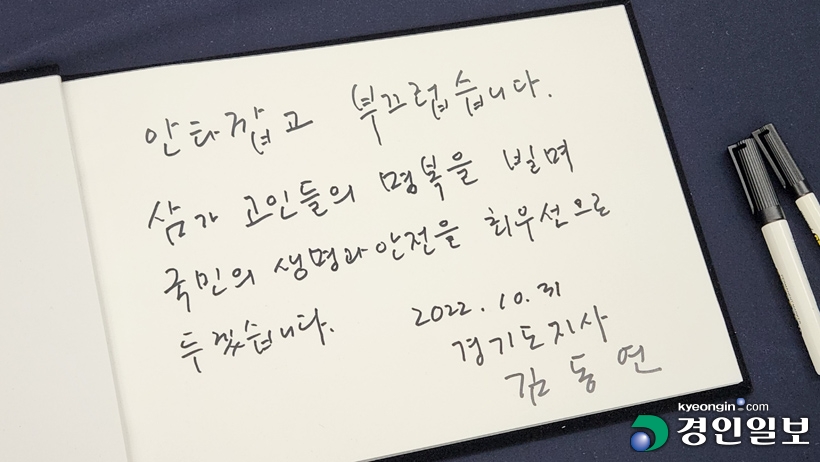 안타깝고 부끄럽습니다.
삼가 고인들의 명복을 빌며
국민의 생명과 안전을 최우선으로
두겠습니다.
2022. 10. 31
경기도지사
김동연
kyeongin.com
경인일보